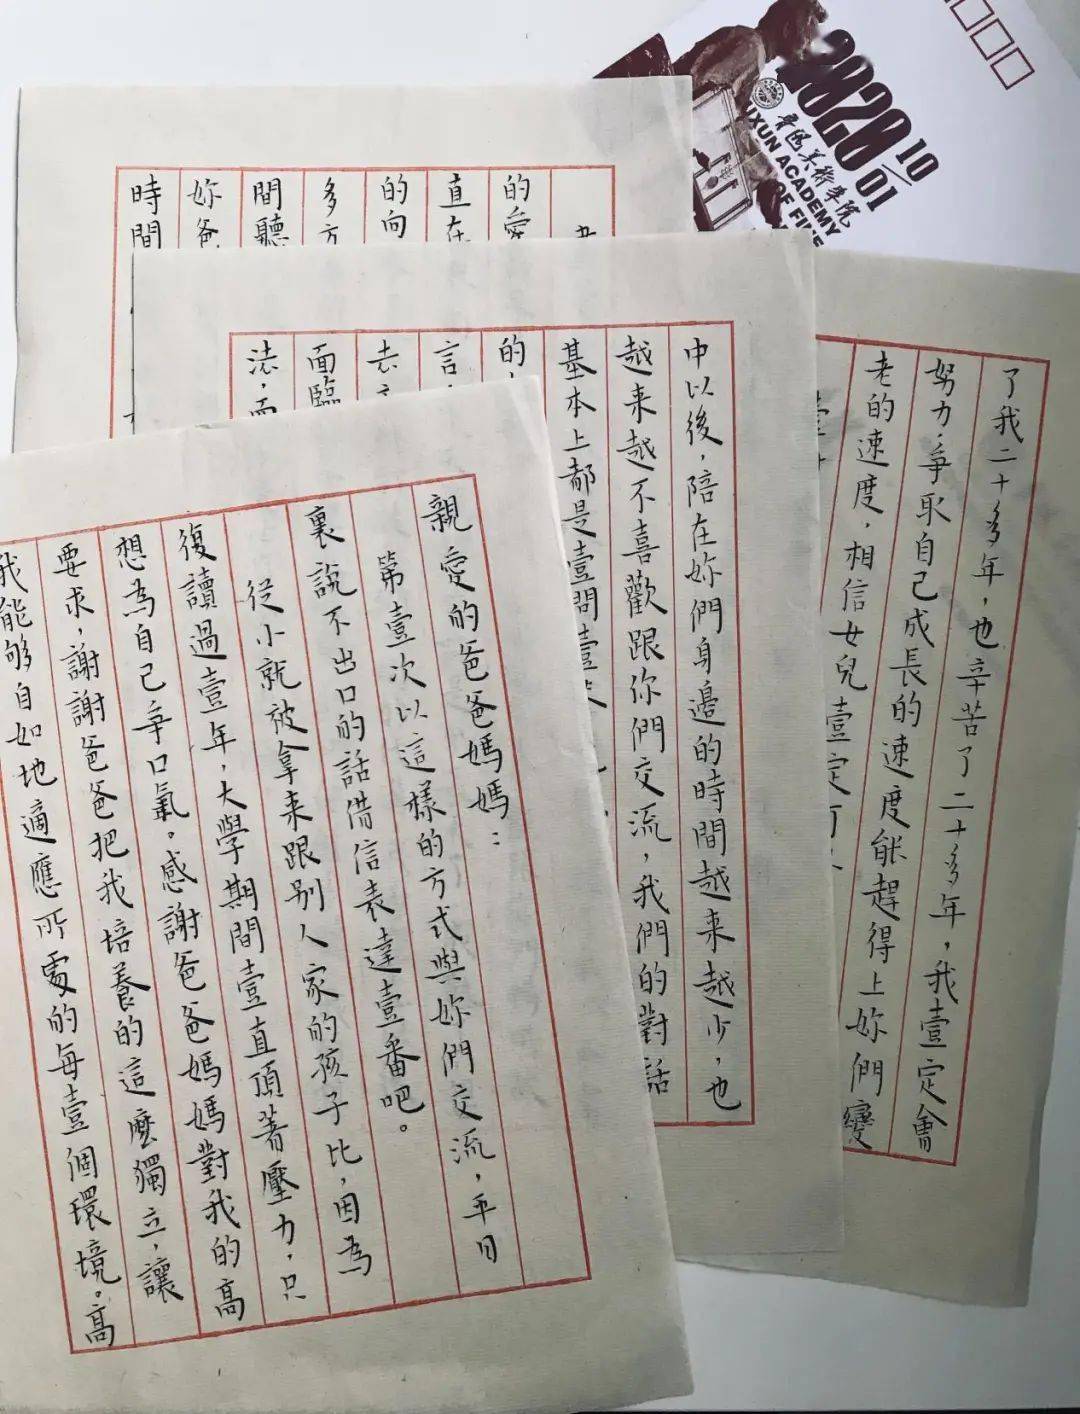 親愛的爸爸媽媽：
第壹次以這樣的方式與妳們交流，平日
裏說不出口的話借信表達壹番吧。
從小就被拿来跟别人家的孩子比，因為
復讀過壹年，大學期間壹直頂著壓力，只
想為自己争口氣。感謝爸爸媽媽對我的高
要求，謝謝爸爸把我培養的這麽獨立，讓
我能够自如地適應所處的每壹個環境。高
中以後，陪在妳們身邊的時間越来越少，也
越来越不喜歡跟你們交流，我們的對話
基本上都是壹問壹
的
言，
去
面臨
法，而
了我二十多年，也辛苦了二十多年，我壹定會
努力，争取自己成長的速度能趕得上妳們變
老的速度，相信女兒壹定可
的愛
直在
的向
多方
間聽
妳爸
時間
2020 10/01
鲁迅美術學院
LUXUN ACADEMY
OF FINE